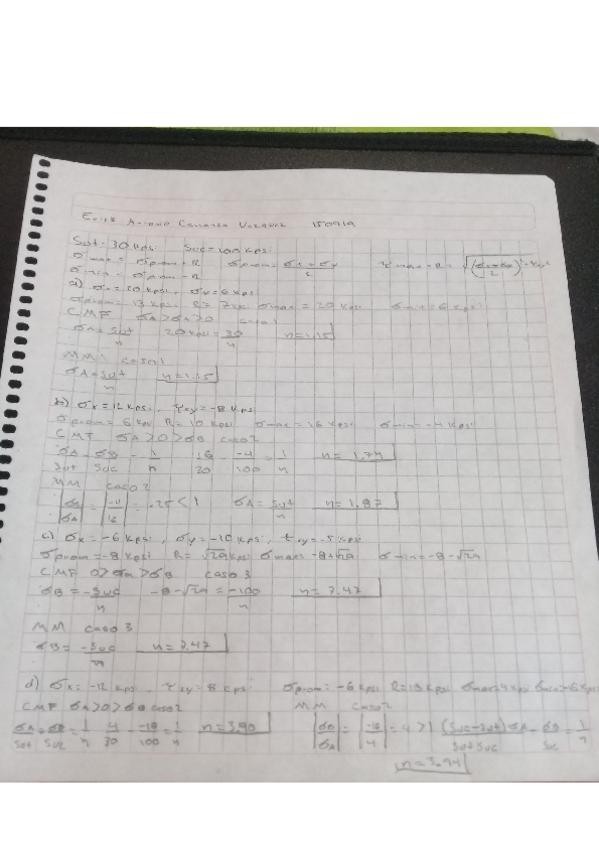 Sut=30 Kpsi Suc=100 Kpsi
σmax = σprom + R σprom = σx + σy / 2 τmax = R =
σmin = σprom - R
a) σy = 6 Kpsi
σprom = 13 Kpsi R = 7 σmax = 20 Kpsi σmin = 6 Kpsi
CMF caso 1
σA = Sut/n 20 Kpsi = 30/n
MM caso 1
σA = Sut/n
b) σx = 12 Kpsi, τxy = -8 Kpsi
σprom = 6 Kpsi R = 10 Kpsi σmax = 16 Kpsi σmin = -4 Kpsi
CMF σA > 0 > σB caso 2
σA/Sut - σB/Suc = 1/n -4/100 = 1/n
MM caso 2
|σB/σA| = .25 < 1 σA = Sut/n n = 1.87
c) σx = -6 Kpsi, σy = -10 Kpsi, τxy = -5 Kpsi
σprom = -8 Kpsi R = √29 Kpsi σmax = -8+√29 σmin = -8-√29
CMF 0 > σA > σB caso 3
σB = -Suc/n -8-√29 = -100/n n = 7.47
MM caso 3
σB = -Suc/n n = 7.47
d) σx = -12 Kpsi, τxy = 8 Kpsi σprom = -6 Kpsi
CMF σA > 0 > σB caso 2 MM caso 2
σA/Sut - σB/Suc = 1/n 4/30 - -16/100 = 1/n |σB/σA| = |-16/4| = 4 > 1 (Suc-Sut)σA/SutSuc - σB/Suc = 1/n
n = 3.94